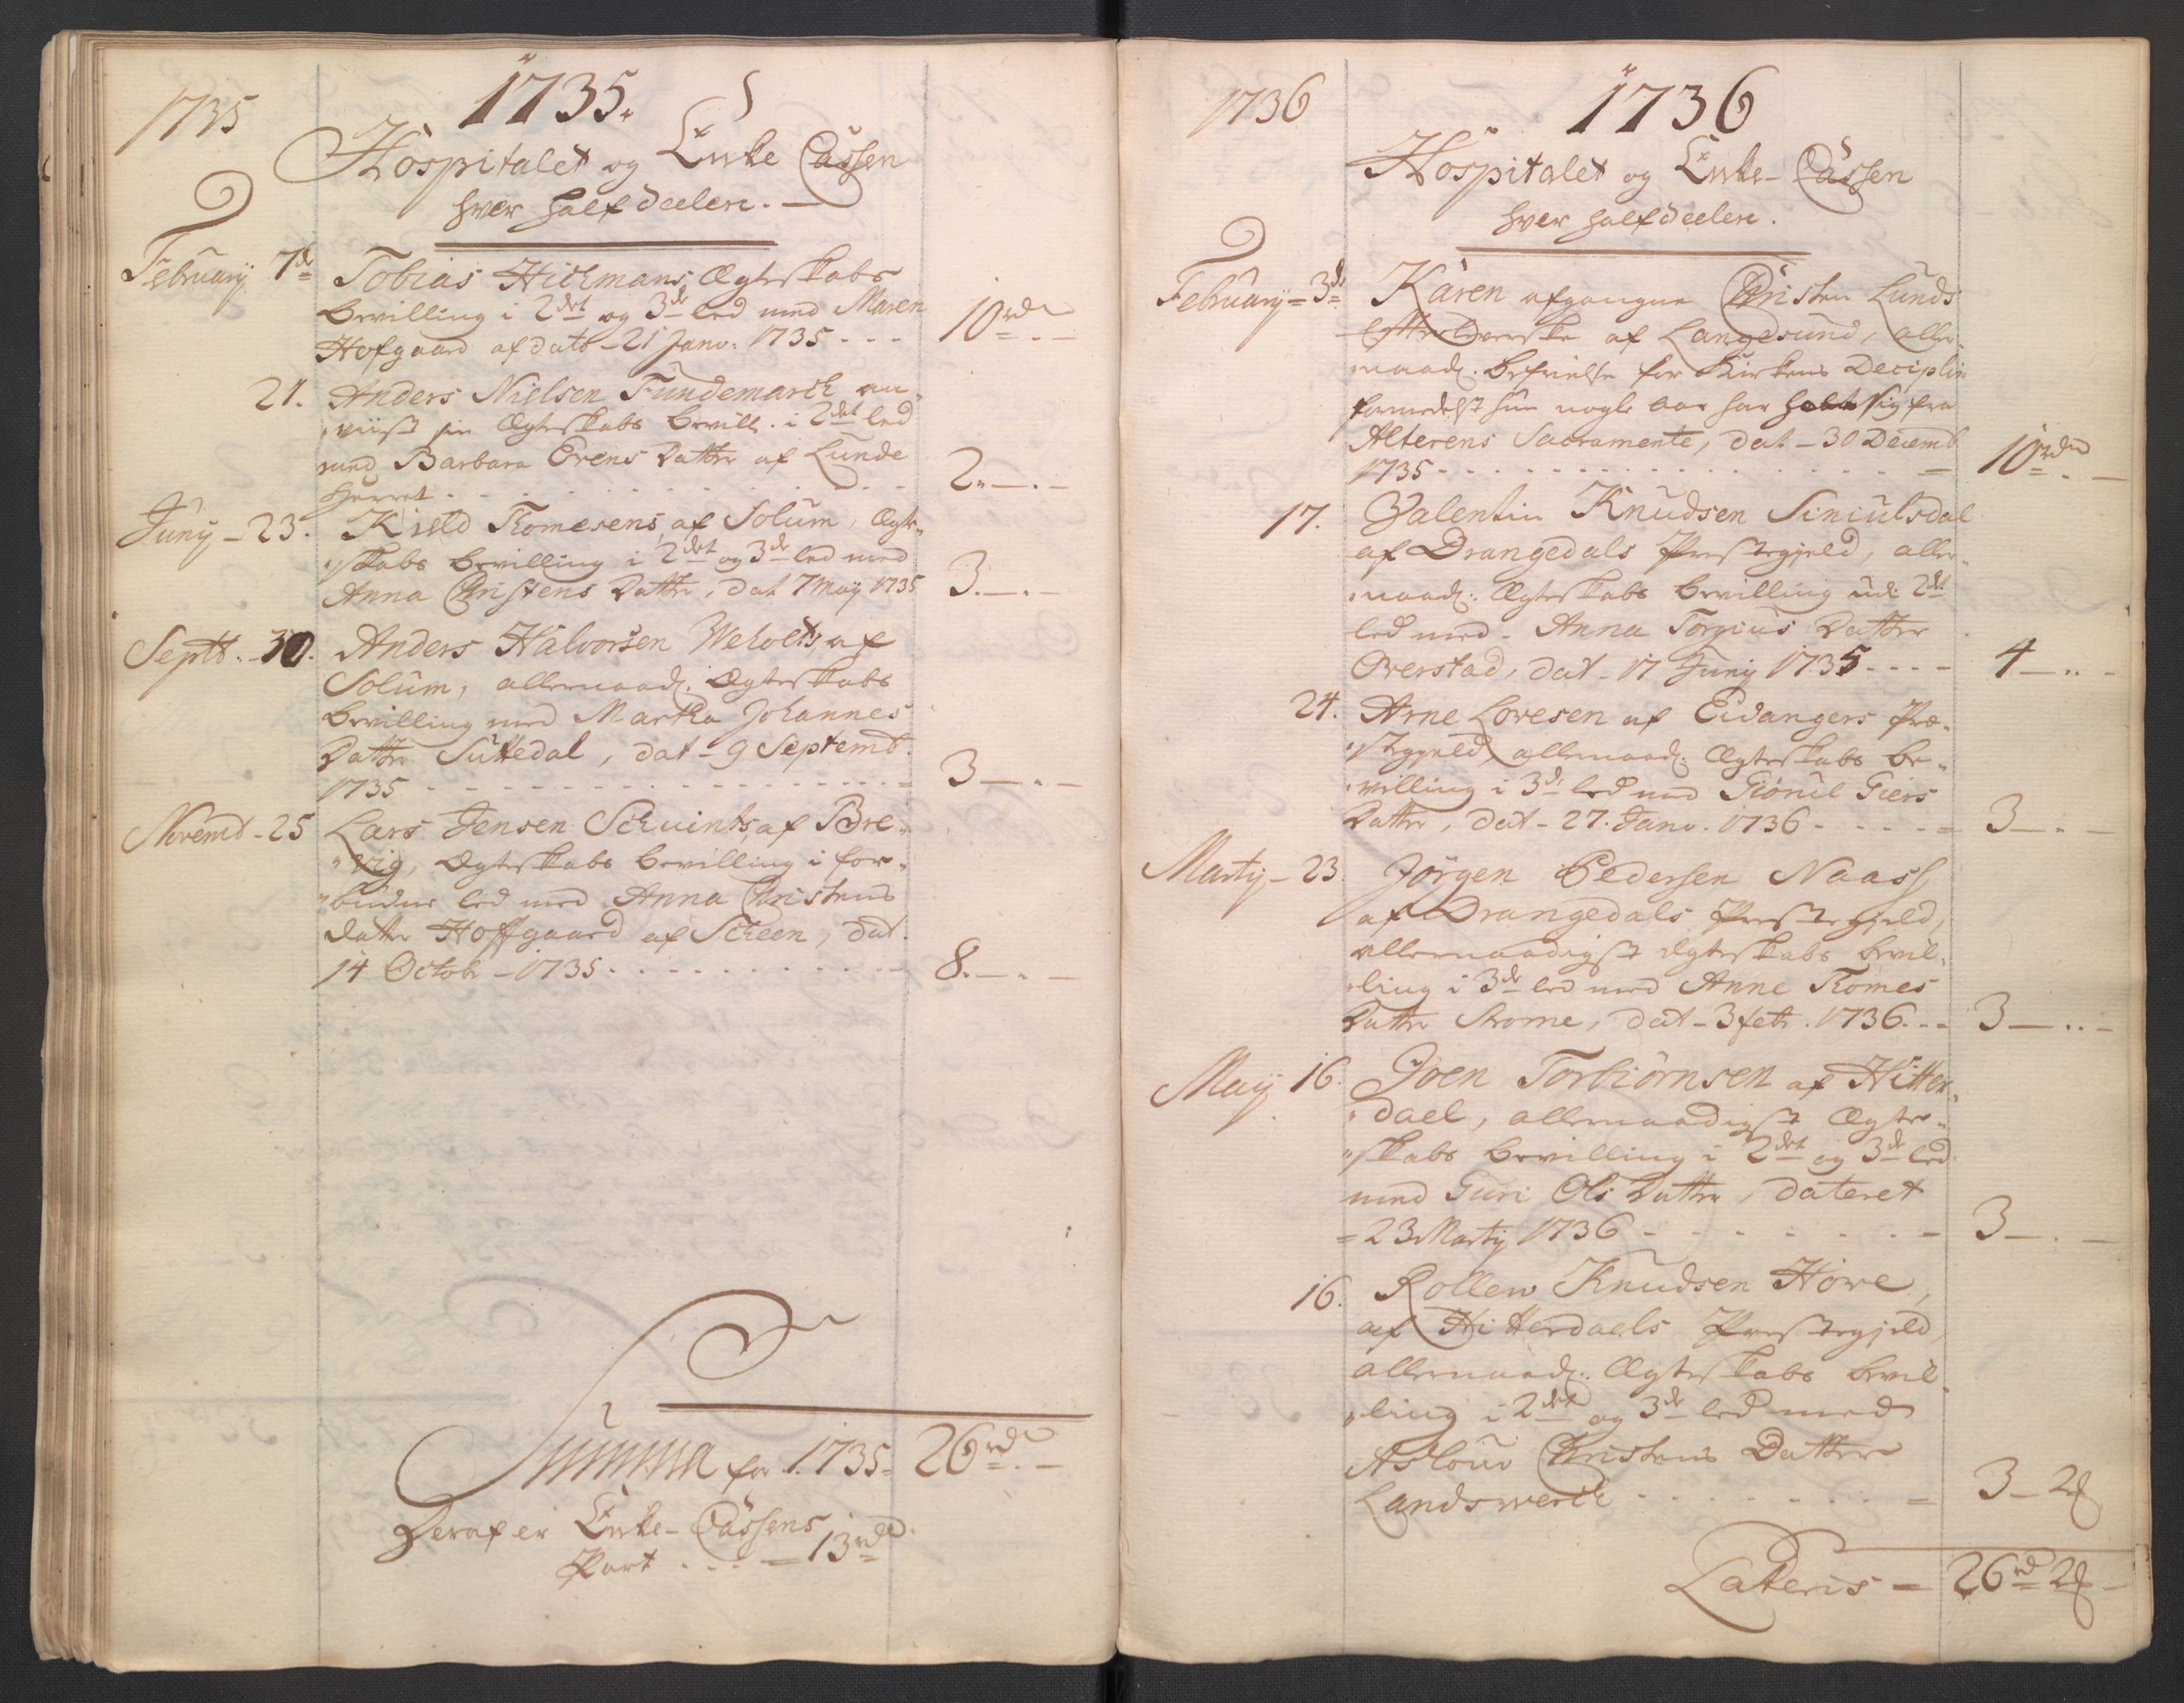 1735
1735.
Hospitalet og Enke Cassen
hver halfdeelen.
February 7de Tobias Hichmans Ægteskabs
Bevilling i 2det og 3de led med Maren
Hofgaard af dato 21 Janv: 1735 - - - 10rdr
21. Anders Nielsen Fundemarck an-
viist sin Ægteskabs bevill. i 2det led
med Barbara Evens Datter af Lunde
Herret - - - 2.
Juny 23. Kield Thomesens af Solum, Ægte-
skabs bevilling i 2det og 3de led med
Anna Christens Datter, dat 7 May 1735 3.
Septb. 30. Anders Halvorsen Weholts af
Solum, allernaad: Ægteskabs
bevilling med Martha Johannes
Datter Suttedal, dat - 9 Septemb.
1735 - - - 3
Novemb - 25 Lars Jensen Schuints af Bre-
vig, Ægteskabs bevilling i for-
budne led med Anna Christens
datter Hoffgaard af Scheen, dat.
14 Octobr - 1735 - - - 8.
Summa for 1735 26rdr
Deraf er Enke-Cassens
Part - - - 13rdr
1736
1736
Hospitalet og Enke-Cassen
hver halfdeelen.
February 3de Karen afgangne Christen Lunds
Efterleverske af Langesund, aller-
naad: befrielse for Kirkens Deciplin
formedelst hun nogle aar har holdt sig fra
Alterens Sacramente, dat - 30 Decemb
1735 - - - 10rdr
17. Valentin Knudsen Siniulsdal
af Drangedals Præstegjeld, aller-
naad: Ægteskabs bevilling udi 2det
led med Anna Torgius Datter
Overstad, dat - 17 Juny 1735 - - - 4
24. Arne Lovesen af Eidangers Præ-
stegjeld allernaad: Ægteskabs be-
villing i 3de led med Giönil Giers
Datter, dat - 27. Janv. 1736 - - - 3
Marty - 23. Jörgen Pedersen Naass
af Drangedals Præstegjeld,
allernaadigst Ægteskabs bevil-
ling i 3de led med Anne Thomes
Datter Strome, dat - 3 febr. 1736 - - 3
May 16. Joen Torbiörnsen af Hitter-
dael, allernaadigst Ægte-
skabs bevilling i 2det og 3de led
med Guri Ols Datter, dateret
23 Marty 1736 - - - 3
16. Rollew Knudsen Howe,
af Hitterdaels Præstegjeld,
allernaad: Ægteskabs bevil-
ling i 2det og 3de led med
Aslou Christens Datter
Landswerck - - - 3 - 2ß
Lateris - 26rd 2ß